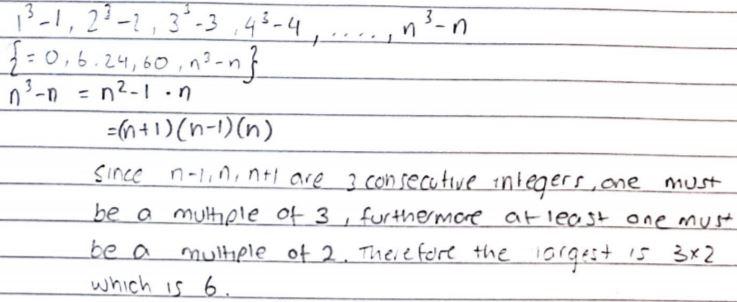 1³-1, 2³-2, 3³-3, 4³-4, ...., n³-n
{= 0, 6. 24, 60, n³-n}
n³-n = n²-1 · n
=(n+1)(n-1)(n)
Since n-1, n, n+1 are 3 consecutive integers, one must
be a multiple of 3, furthermore at least one must
be a multiple of 2. Therefore the largest is 3×2
which is 6.